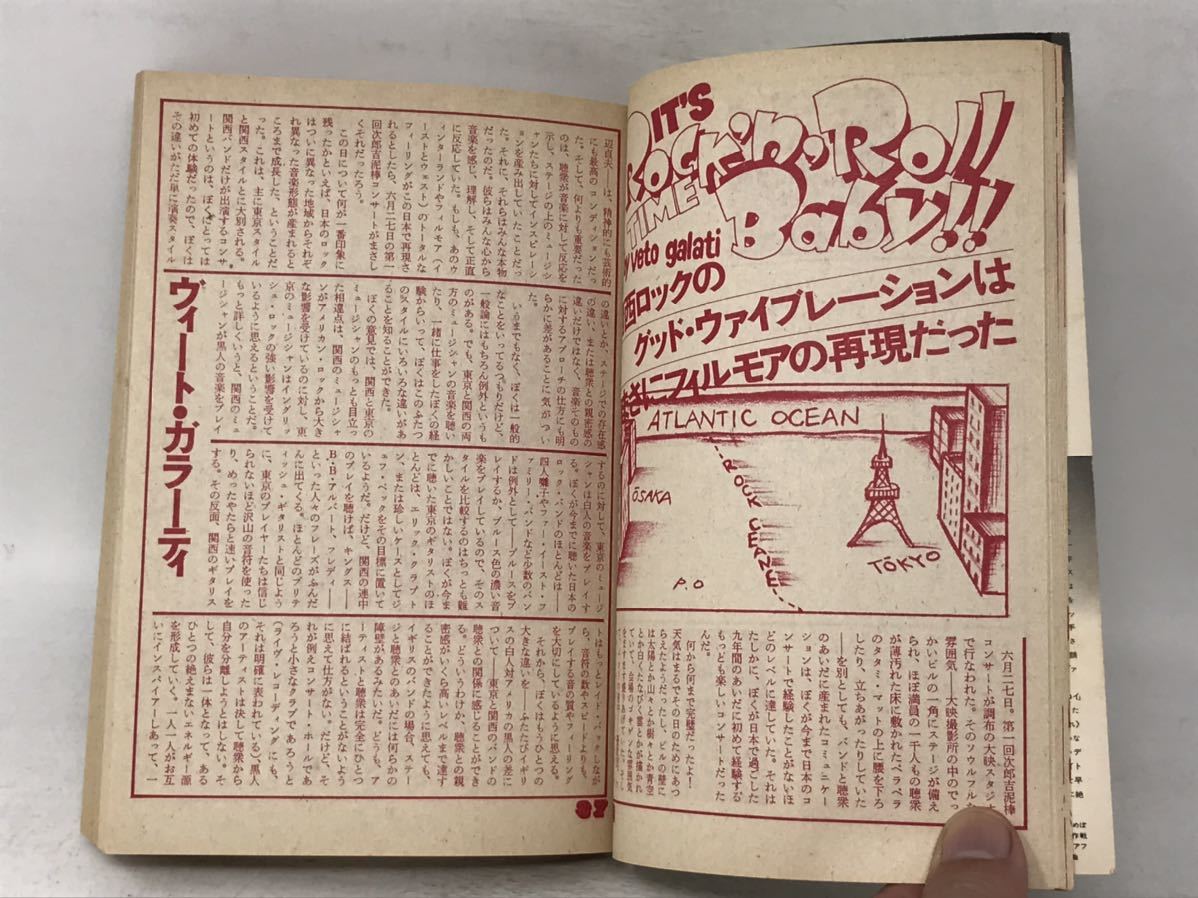 IT'S
Rock'n・Roll
TIME
Baby!!!
veto galati
西ロックの
グッド・ヴァイブレーションは
まさにフィルモアの再現だった
ATLANTIC OCEAN
ŌSAKA
ROCK
CEANE
TŌKYO
P.O
六月二七日。第一回次郎吉泥棒
コンサートが調布の大映スタジオ
で行なわれた。そのソウルフルな
雰囲気——大映撮影所の中のでっ
かいビルの一角にステージが備え
られ、ほぼ満員の一千人もの聴衆
が薄汚れた床に敷かれたペラペラ
のタタミ・マットの上に腰を下ろ
したり、立ちあがったりしていた
——を別としても、バンドと聴衆
のあいだに産まれたコミュニケー
ションは、ぼくが今まで日本のコ
ンサートで経験したことがないほ
どのレベルに達していた。それは
たしかに、ぼくが日本で過ごした
九年間のあいだに初めて経験する
もっとも楽しいコンサートだった
んだ。
何から何まで完璧だったよ！
天気はまるでその日のためにあつ
ビルの壁に
は太陽とか山々とか樹々とか青空
とか白くたなびく雲とかが描かれ
ていて、会場の
辺貞夫——は、精神的にも芸術的
にも最高のコンディションだっ
た。そして、何よりも重要だった
のは、聴衆が音楽に対して反応を
示し、ステージの上のミュージシ
ャンたちに対してインスピレーシ
ョンを産み出していたことだっ
た。それに、それらはみんな本物
だったのだ。彼らはみんな心から
音楽を感じ、理解し、そして正直
に反応していた。もしも、あのウ
ィンターランドやフィルモア（イ
ーストとウェスト）のトータルな
フィーリングがこの日本で再現さ
れるとしたら、六月二七日の第一
回次郎吉泥棒コンサートがまさし
くそれだったろう。
この日について何が一番印象に
残ったかといえば、日本のロック
はついに異なった地域からそれぞ
れ異なった音楽形態が産まれると
ころまで成長した、ということだ
った。これは、主に東京スタイル
と関西スタイルとに大別される。
関西バンドだけが出演するコンサ
ートというのは、ぼくにとっては
初めての体験だったので、ぼくは
その違いがただ単に演奏スタイル
の違いとか、ステージでの存在感
の違い、または聴衆との親密感の
違いだけではなく、音楽そのもの
に対するアプローチの仕方にも明
らかに差があることに気がつい
た。
いうまでもなく、ぼくは一般的
なことをいってるつもりだけど、
一般論にはもちろん例外というも
のがある。でも、東京と関西の両
方のミュージシャンの音楽を聴い
たり、一緒に仕事をしたぼくの経
験からいって、ぼくはこのふたつ
のスタイルにいろいろな違いがあ
ることを知ることができた。
ぼくの意見では、関西と東京の
ミュージシャンのもっとも目立っ
た相違点は、関西のミュージシャ
ンがアメリカン・ロックから大き
な影響を受けているのに対し、東
京のミュージシャンはイングリッ
シュ・ロックの強い影響を受けて
いるように思えるということだ。
もっと詳しくいうと、関西のミュ
ージシャンが黒人の音楽をプレイ
するのに対して、東京のミュージ
シャンは白人の音楽をプレイす
る。ぼくが今までに聴いた日本の
ロック・バンドのほとんどは——
四人囃子やファー・イースト・フ
ァミリー・バンドなど少数のバン
ドは例外として——ブルースをプ
レイするか、ブルース色の濃い音
楽をプレイしているので、そのス
タイルを比較するのはちっとも難
かしいことではない。ぼくが今ま
でに聴いた東京のギタリストのほ
とんどは、エリック・クラプト
ン、または珍しいケースとしてジ
ェフ・ベックをその目標に置いて
いるようだ。だけど、関西の連中
のプレイを聴けば、キングス——
B・B・アルバート、フレディ——
といった人々のフレーズがふんだ
んに出てくる。ほとんどのブリテ
ィッシュ・ギタリストと同じよう
に、東京のプレイヤーたちは信じ
られないほど沢山の音符を使った
り、めったやたらと速いプレイを
する。その反面、関西のギタリス
トはもっとレイド・バックしなが
ら、音符の数やスピードよりも、
プレイする音の質やフィーリング
を大切にしているように思える。
それから、ぼくはもうひとつの
大きな違いを——ふたたびイギリ
スの白人対アメリカの黒人の差に
ついて——東京と関西のバンドの
聴衆との関係に感じることができ
る。どういうわけか、聴衆との親
密感がいくら高いレベルまで達す
ることができたように思えても、
イギリスのバンドの場合、ステー
ジと聴衆とのあいだには何らかの
障壁があるみたいだ。どうも、ア
ーティストと聴衆は完全にひとつ
に結ばれるということがないよう
に思えて仕方がない。だけど、そ
れが例えコンサート・ホールであ
ろうと小さなクラブであろうと
（ライヴ・レコーディングにも、
それは明確に表われている）、黒人
のアーティストは決して聴衆から
自分を分離しようとはしない。そ
して、彼らは一体となって、ある
ひとつの絶えまないエネルギー源
を形成していく。一人一人がお互
いにインスパイアーしあって、一
ヴィート・ガラーティ
87